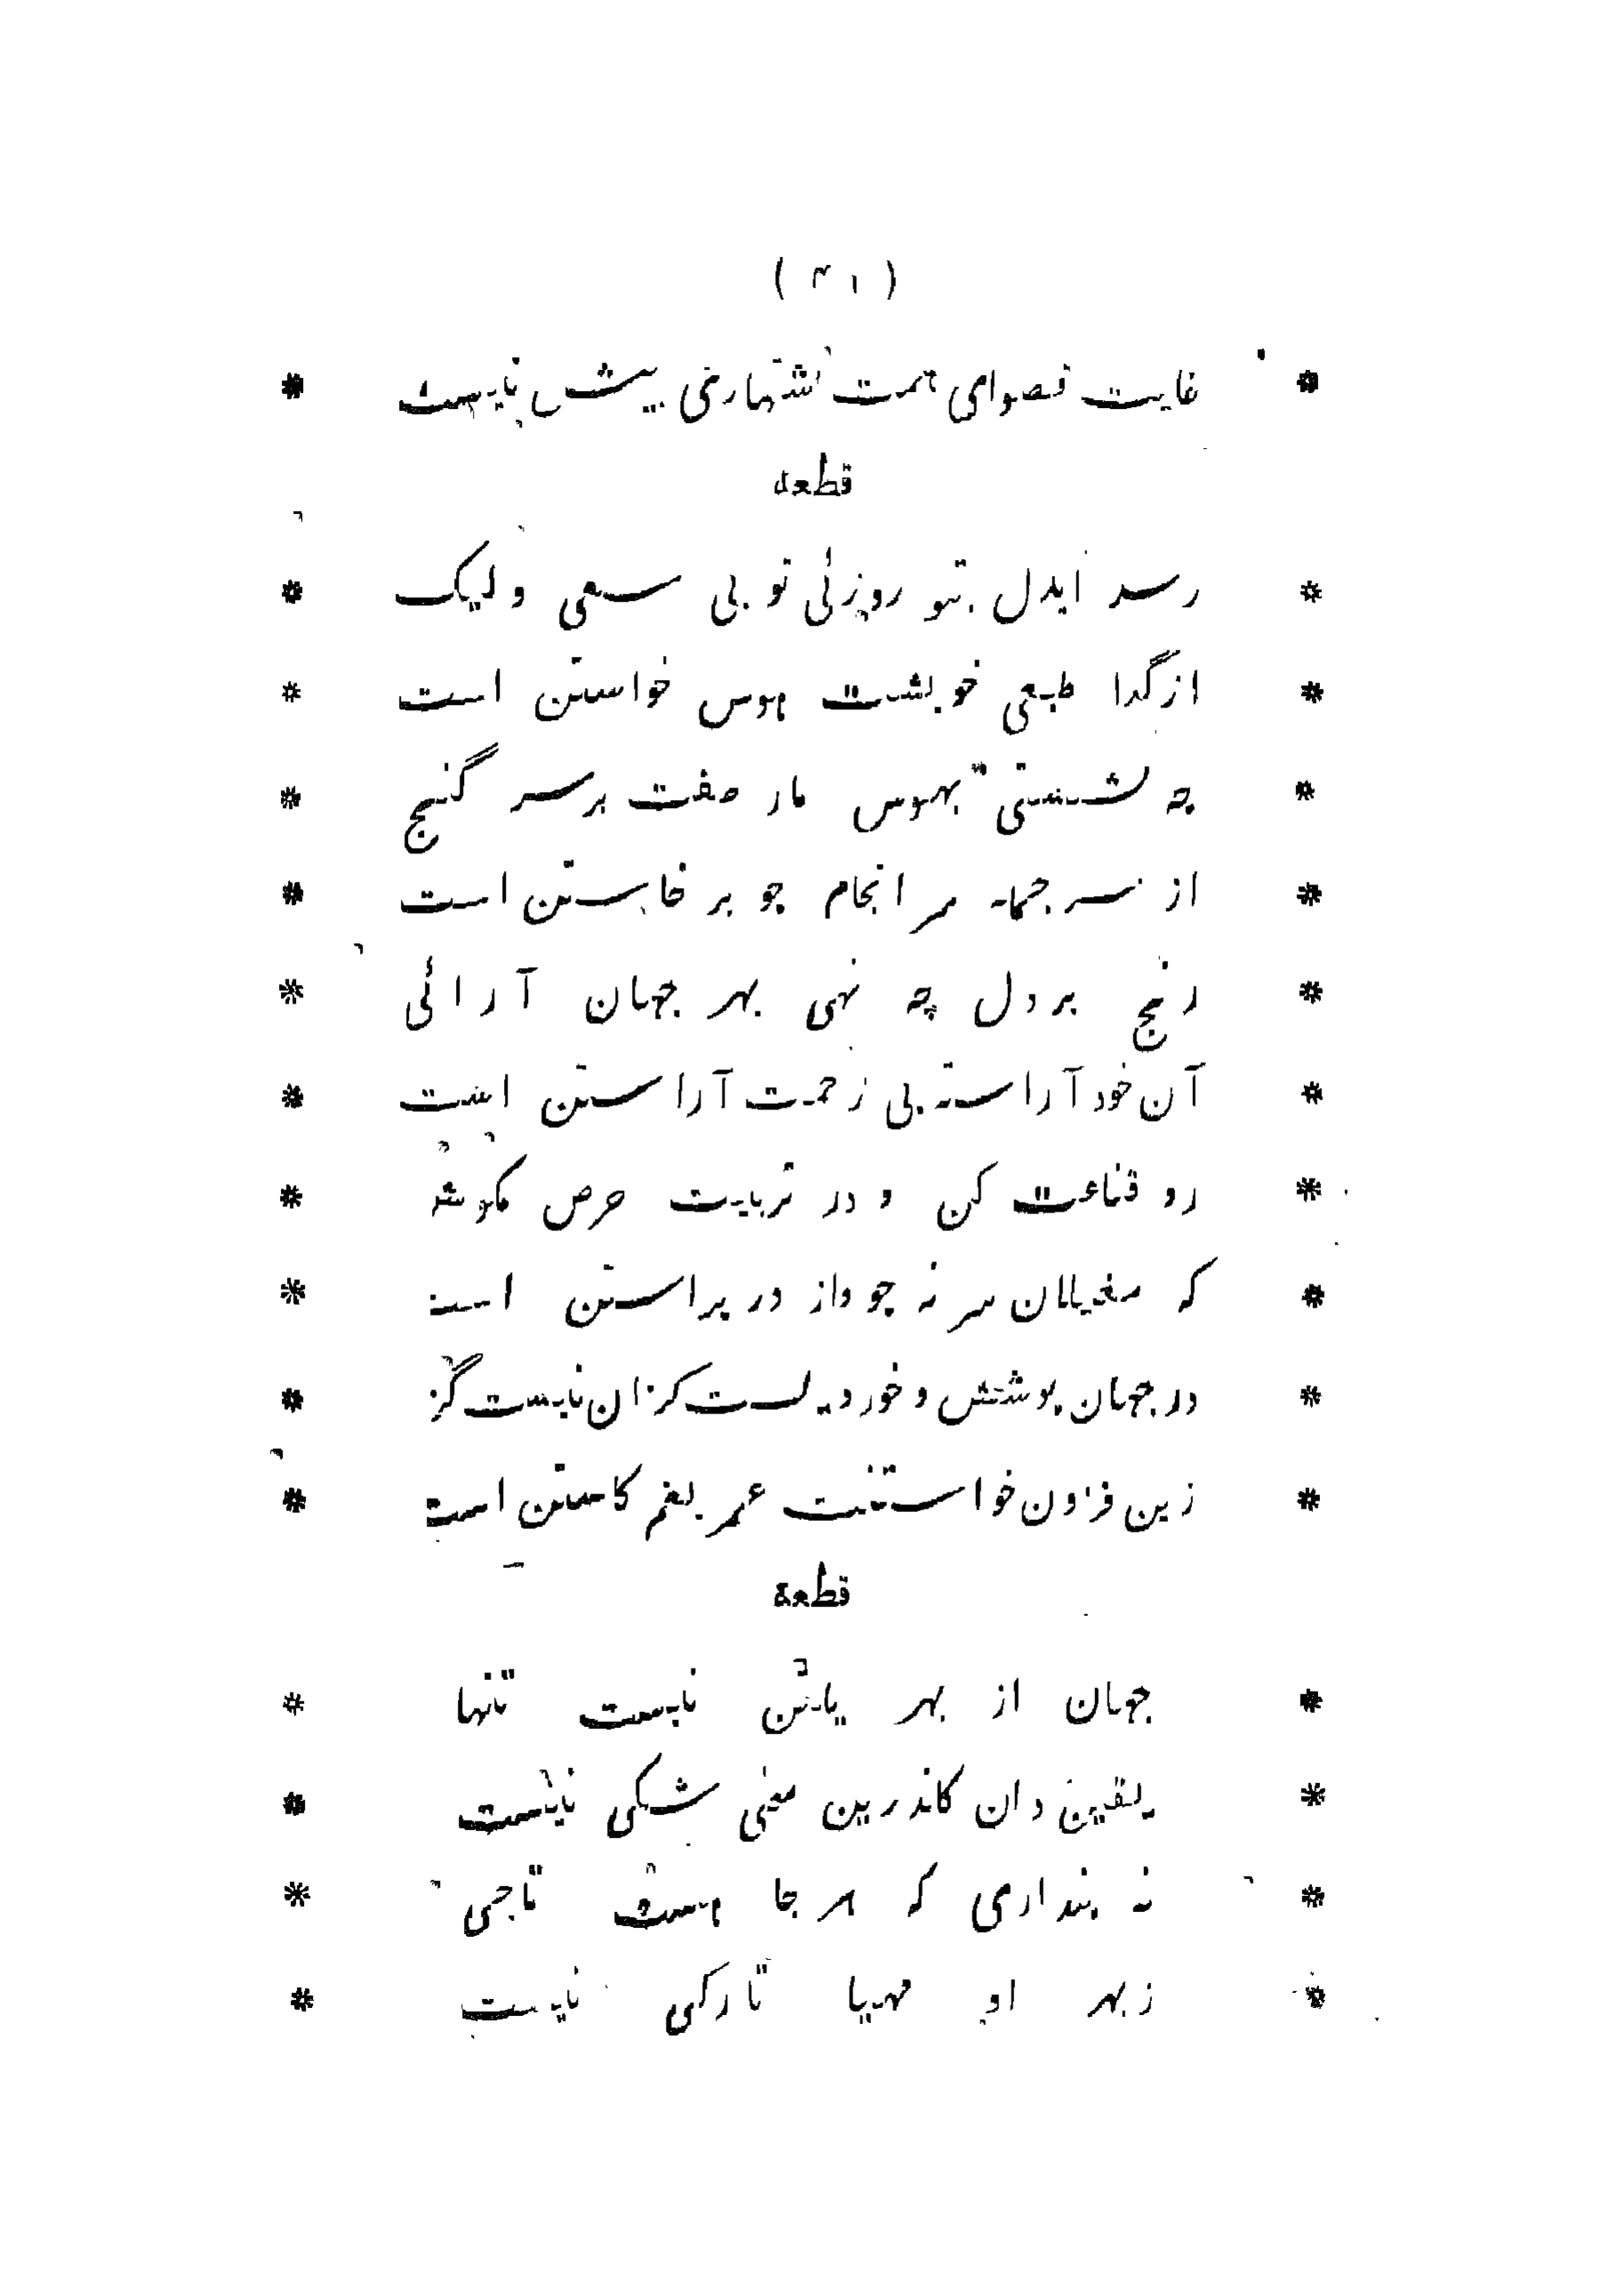 ( ۴۱ )
* غایت قصوای همت اشتهاری بیش نیست *
قطعه
* رسد ایدل بتو روزئی تو بی سعی ولیک *
* از گدا طبعی خویشت هوس خواستن است *
* چه نشستی بهوس مار صفت بر سر گنج *
* از سر جمله سر انجام چو بر خاستن است *
* رنج بر دل چه نهی بهر جهان آرائی *
* آن خود آراسته بی زحمت آراستن است *
* رو قناعت کن و در تربیت حرص مکوش *
* که مغیلان سر نه چو واز در پیراستن است *
* در جهان پوشش و خوردیست کزان نیست گز *
* زین فزون خواستنت عمر بغم کاستن است *
قطعه
* جهان از بهر یکتن نیست تنها *
* یقین دان کاندرین معنی شکی نیست *
* نه پنداری که هر جا هست تاجی *
* ز بهر او مهیا تارکی نیست *